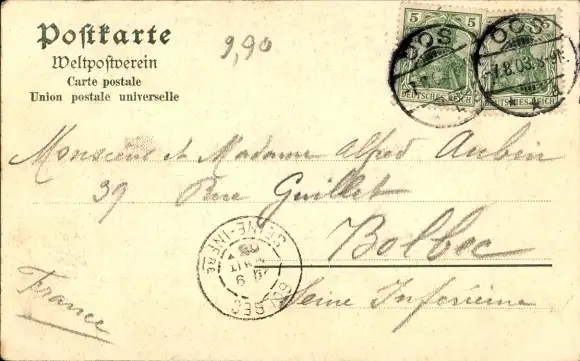 Postkarte
9,90
Weltpostverein
Carte postale
Union postale universelle
5 5
DEUTSCHES REICH DEUTSCHES REICH
OOS OOS
7.8.03.8-9
Monsieur et Madame Alfred Aubin
39 Rue Guillet
Bolbec
Seine Inférieure
France
BOLBEC
SEINE-INFRE